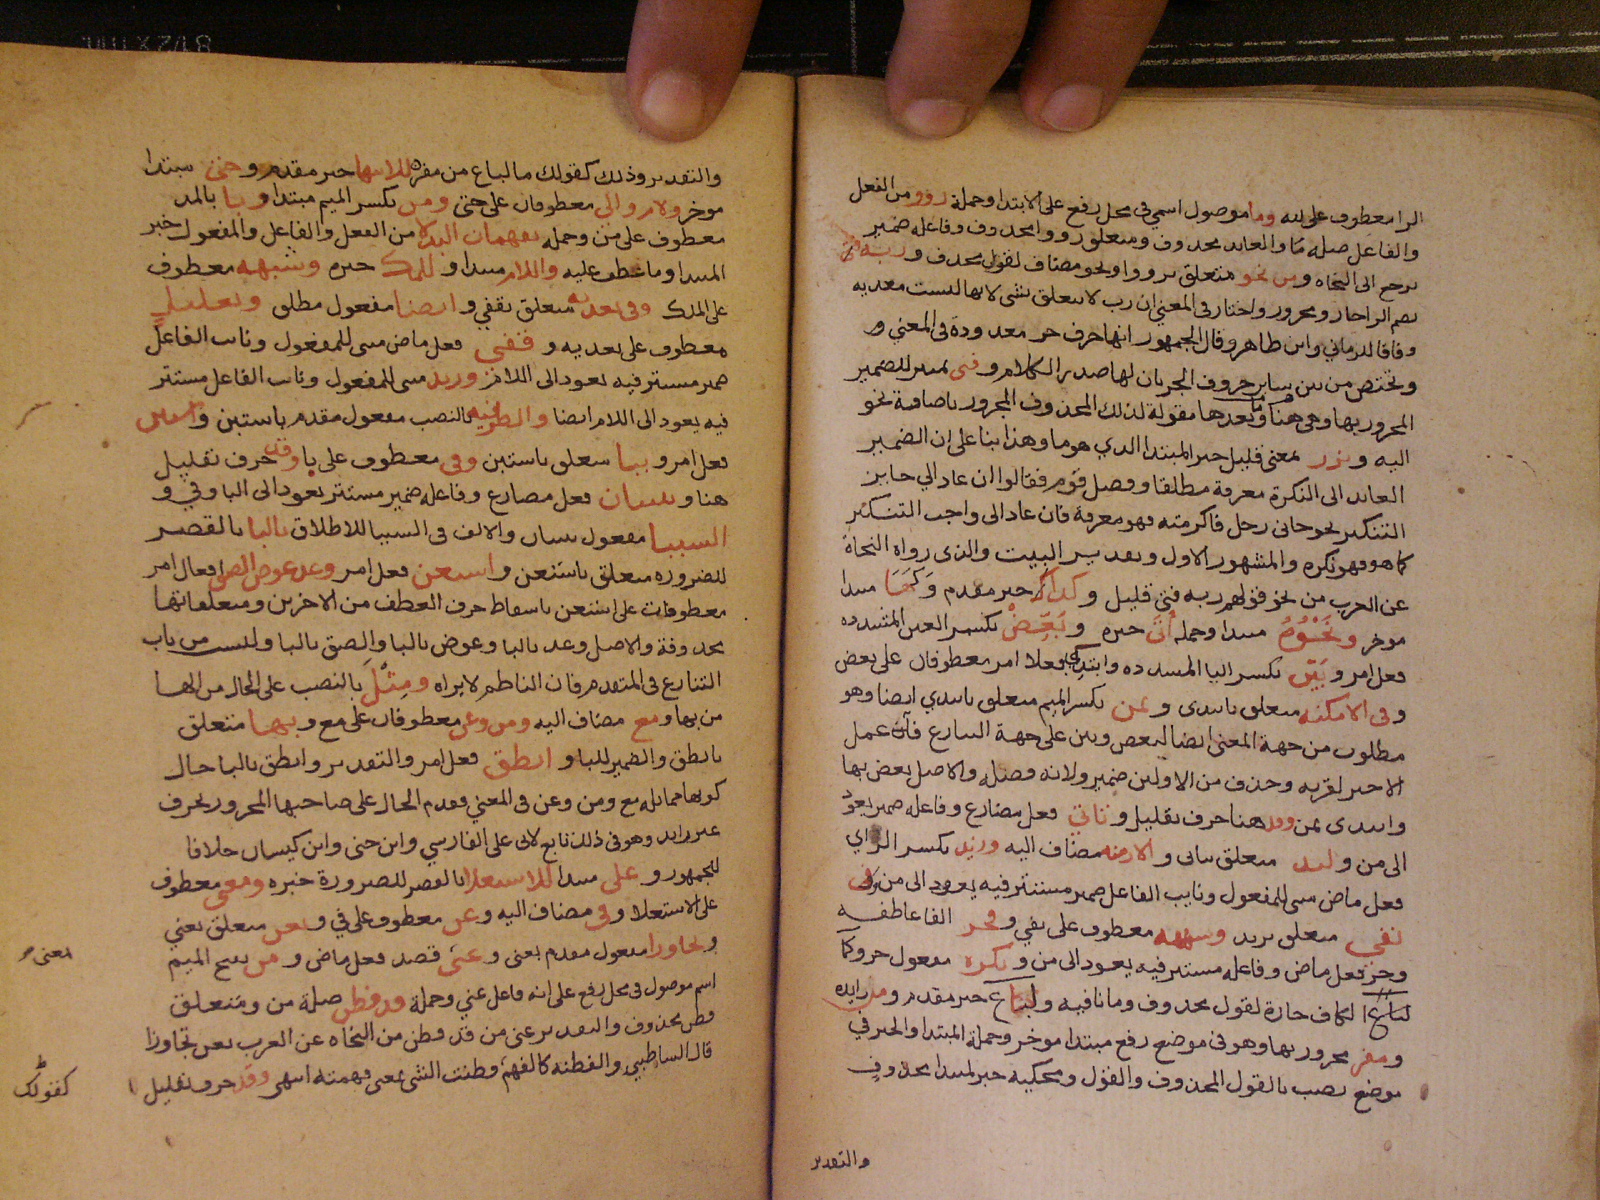 الرا معطوف على لله وما موصول اسمي في محل رفع على الابتدا وجملة رووا من الفعل
والفاعل صله ما والعايد محذوف ومتعلق رووا محذوف وفاعله ضمير
يرجع الى النحاه ومن نحو متعلق برووا ونحو مضاف لقول محذوف وربه
بضم الرا جار ومجرور واختار في المغني ان رب لا تتعلق بشي لانها ليست معديه
وفاقا للرماني وابن طاهر وقال الجمهور انها حرف جر معدودة في المغني و
وتختص من بين ساير حروف الجر بان لها صدر الكلام وفتى تمييز للضمير
المجرور بها وهي هنا وما بعدها مقولة لذلك المحذوف المجرور باضافة نحو
اليه ونزر بمعنى قليل خبر المبتدا الذي هو ما وهذا بنا على ان الضمير
العايد الى النكرة معرفة مطلقا وفصل قوم فقالوا ان عاد الي جايز
التنكير نحو جاني رجل فاكرمته فهو معرفة فان عاد الى واجب التنكير
كما هو فهو نكره والمشهور الاول وتقدير البيت والذى رواه النحاة
عن العرب من نحو قولهم ربه فتى قليل وكذا خبر مقدم وكها مبتدا
موخر ونحوه مبتدا وجمله اتى خبره وبعض بكسر العين المشدده
فعل امر وبين بكسر اليا المسدده وابتدى فعلا امر معطوفان على بعض
وفي الامكنه متعلق بابتدى وبمن بكسر الميم متعلق بابتدي ايضا وهو
مطلوب من جهة المعنى ايضا لبعض وبين على جهة التنازع فاعمل
الاخير لقربه وحذف من الاولين ضميره لانه فضله والاصل بعض بها
وابتدى بمن وقد هنا حرف تقليل وتاتي فعل مضارع وفاعله ضمير يعود
الى من ولبد متعلق بتاتى والازمنه مضاف اليه وزيد بكسر الزاي
فعل ماض مبنى للمفعول ونايب الفاعل ضمير مستتر فيه يعود الى من وفي
نفي متعلق بزيد وشبهه معطوف على نفي وفجر الفا عاطفه
وجر فعل ماض وفاعله مستتر فيه يعود الى من ونكره مفعول جر وكما
لباغ الكاف جارة لقول محذوف وما نافيه ولباغ خبر مقدم ومن زايده
ومفر مجرور بها وهو في موضع رفع مبتدا موخر وجملة المبتدا والخبر في
موضع نصب بالقول المحذوف والقول ومحكيه خبر لمبتدا محذوف
والتقدير
والتقدير وذلك كقولك ما لباغ من مفر للانتها خبر مقدم وحتى مبتدا
موخر ولام والى معطوفان على حتى ومن بكسر الميم مبتدا وبا بالمد
معطوف على من وجمله يفهمان البدلا من الفعل والفاعل والمفعول خبر
المبتدا وما عطف عليه واللام مبتدا وللملك خبره وشبهه معطوف
على الملك وفي تعديه متعلق بقفي وايضا مفعول مطلق وتعليل
معطوف على تعديه وقفي فعل ماض مبنى للمفعول ونايب الفاعل
ضمير مستتر فيه يعود الى اللام وزيد مبنى للمفعول ونايب الفاعل مستتر
فيه يعود الى اللام ايضا والظرفيه بالنصب مفعول مقدم باستبن واستبن
فعل امر وببا متعلق باستبن وفي معطوف على با وقد حرف تقليل
هنا ويبينان فعل مضارع وفاعله ضمير مستتر يعود الى البا وفي و
السببا مفعول يبينان والالف في السببا للاطلاق بالبا بالقصر
للضروره متعلق باستعن واستعن فعل امر وعد عوض الصق افعال امر
معطوفات على استعن باسقاط حرف العطف من الاخرين ومتعلقاتها
محذوفة والاصل وعد بالبا وعوض بالبا والصق بالبا وليست من باب
التنازع في المتقدم فان الناظم لا يراه ومثل بالنصب على الحال من الها
من بها ومع مضاف اليه ومن وعن معطوفان على مع وبها متعلق
بانطق والضمير للبا وانطق فعل امر والتقدير وانطق بالبا حال
كونها مماثله مع ومن وعن في المعني فقدم الحال على صاحبها المجرور بحرف
غير زايد وهو في ذلك تابع لابى على الفارسي وابن جنى وابن كيسان خلافا
للجمهور وعلى مبتدا للاستعلا بالقصر للضرورة خبره ومعنى معطوف
على الاستعلا وفي مضاف اليه وعن معطوف على في وبعن متعلق بعني
وتجاوزا مفعول مقدم بعنى وعنى قصد فعل ماض ومن بفتح الميم
اسم موصول في محل رفع على انه فاعل عني وجملة قد فطن صلة من ومتعلق
فطن محذوف والتقدير عنى من قد فطن من النحاه عن العرب بعن تجاوزا
قال الشاطبي والفطنه كالفهم وفطنت الشي بمعنى فهمته انتهى وقد حرف تقليل
بعنى
كقولك